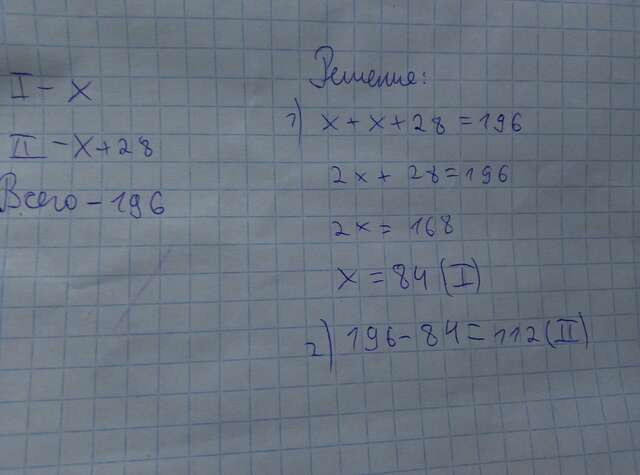 I - x
II - x+28
Всего - 196
Решение:
1) x+x+28=196
2x+28=196
2x=168
x=84 (I)
2) 196-84=112 (II)